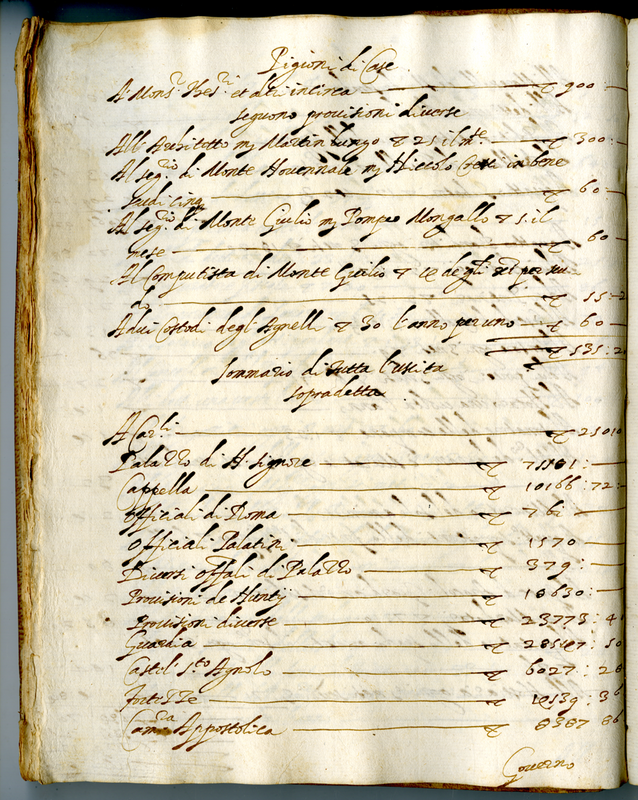 Pigioni di Case
A Mons.r Thes.ri et altri incirca ₰ 900:
seguono provisioni diverse
All'Architetto m Martin lungo ₰ 25 il m.te ₰ 300:
Al seg.rio di Monte Novennale m Niccolo in bene
scudi cinq ₰ 60
Al seg.rio di Monte Giulio m Pompeo Mongallo ₰ 5 il
mese ₰ 60
Al Computista di Monte Giulio ₰ degli per scu
do ₰ 55:2
A dui Custodi degl'Agnelli ₰ 30 l'anno per uno ₰ 60
₰ 535:2
Sommario di tutta l'uscita
sopradetta
A Car.li ₰ 25010
Palazzo di N signore ₰
Cappella ₰ 10166:72
Officiali di Roma ₰ 761:
Officiali Palatini ₰ 1570
Diversi offali di Palazzo ₰ 379:
Provisioni de Nuntij ₰ 18630:
Provisioni diverse ₰ 23773:4
Guardia ₰ 50
Castel s.to Agnolo ₰ 6027:28
fortezze ₰ 36
Cam.ra Appostolica ₰ 8387 86
Governo